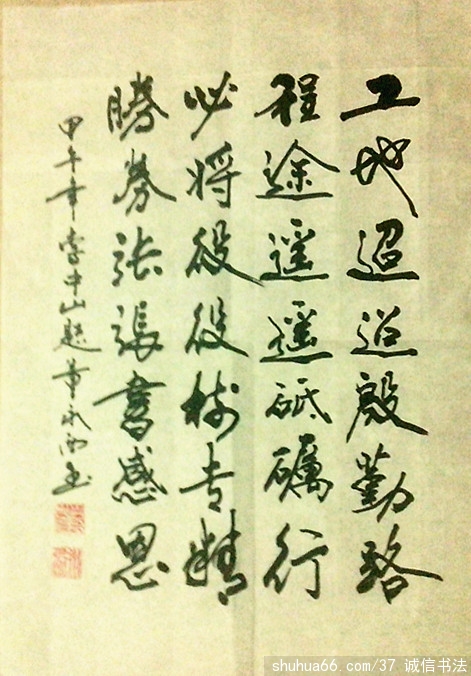 工地迢迢殷勤路
程途遥遥砥礪行
必将役役树专精
勝券张張書感恩
甲午年李中山题董永西书
shuhua66.com/37 诚信书法